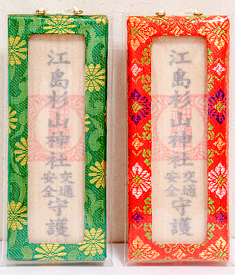 江島杉山神社
交通
安全
守護
江島杉山神社
交通
安全
守護